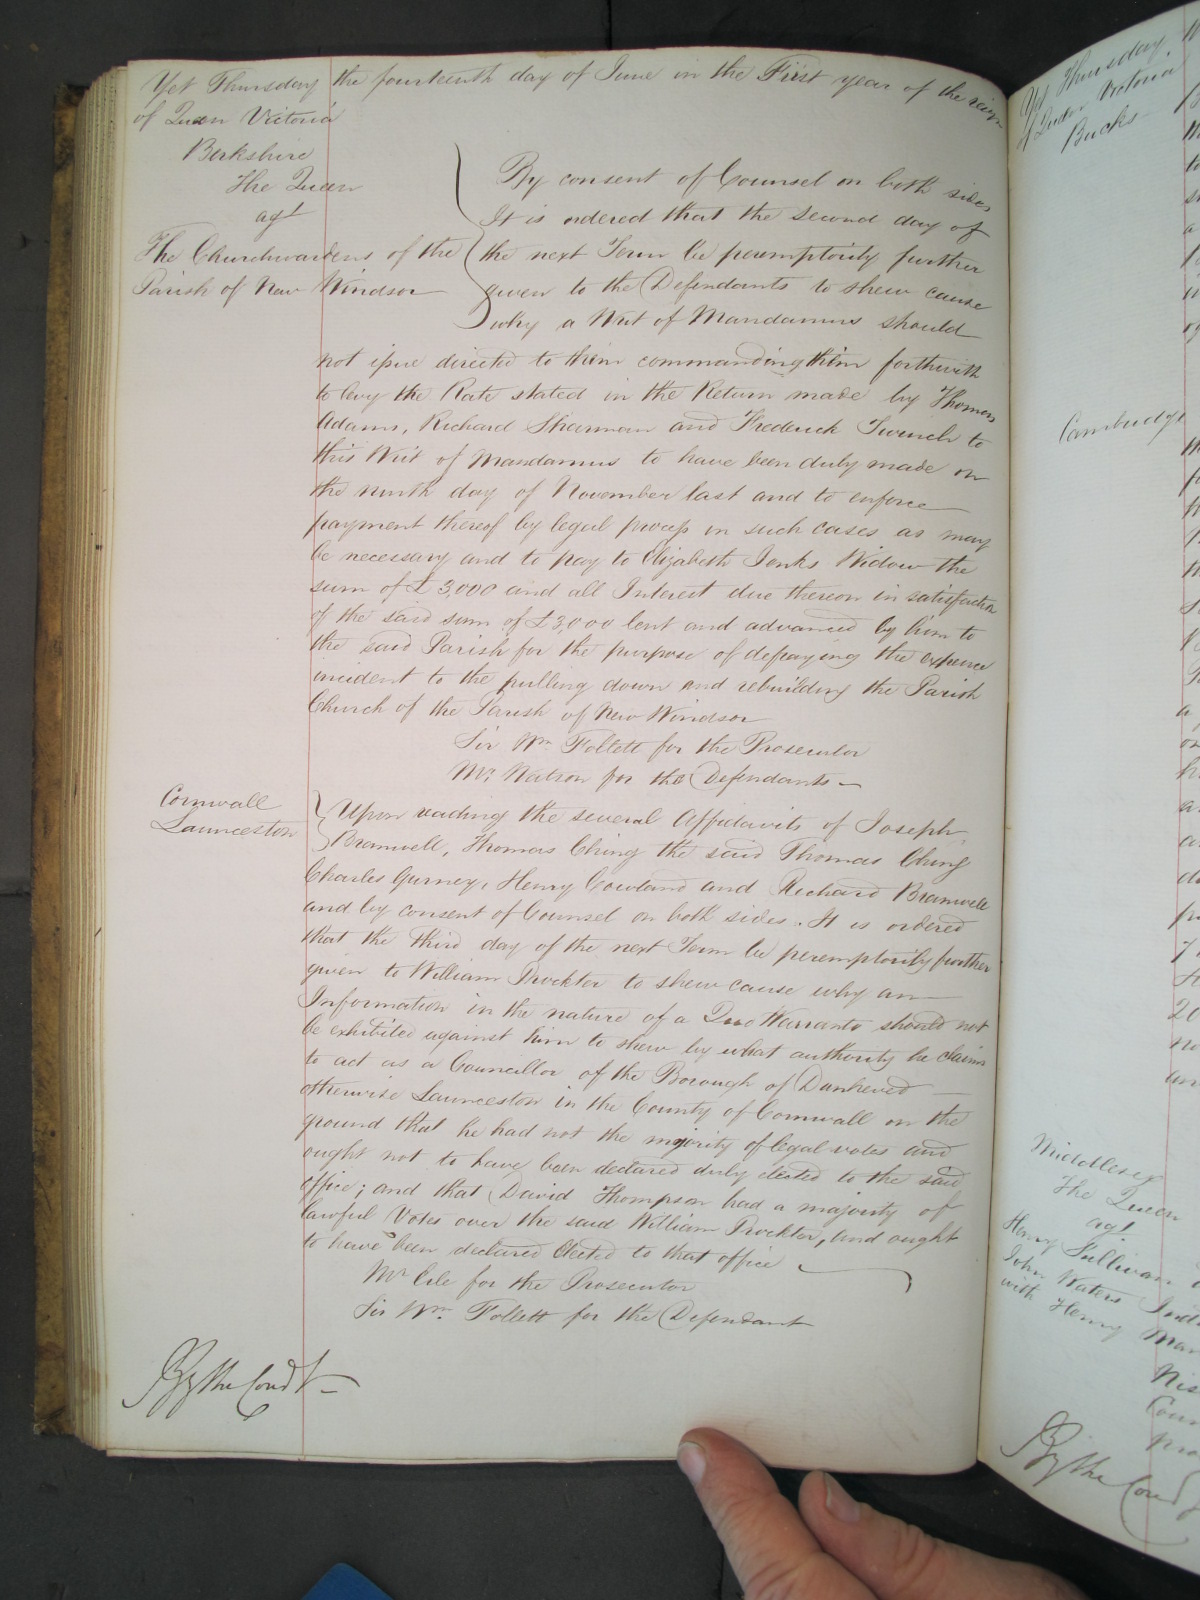 Yet Thursday the fourteenth day of June in the First year of the reign
of Queen Victoria
Berkshire
The Queen
agt
The Churchwardens of the
Parish of New Windsor
By consent of Counsel on both sides
It is ordered that the second day of
the next Term be peremptorily further
given to the Defendants to shew cause
why a Writ of Mandamus should
not issue directed to them commanding them forthwith
to levy the Rate stated in the Return made by Thomas
Adams, Richard Sharman and Frederick Twinch to
this Writ of Mandamus to have been duly made on
the ninth day of November last and to enforce
payment thereof by legal process in such cases as may
be necessary and to pay to Elizabeth Jenks Widow the
sum of £3,000 and all Interest due thereon in satisfaction
of the said sum of £3,000 lent and advanced by him to
the said Parish for the purpose of defraying the expence
incident to the pulling down and rebuilding the Parish
Church of the Parish of New Windsor
Sir Wm. Follett for the Prosecutor
Mr. Watson for the Defendants
Cornwall
Launceston
Upon reading the several Affidavits of Joseph
Bramwell, Thomas Ching the said Thomas Ching
Charles Gurney, Henry Cowland and Richard Bramwell
and by consent of Counsel on both sides. It is ordered
that the third day of the next Term be peremptorily further
given to William Prockter to shew cause why an
Information in the nature of a Quo Warranto should not
be exhibited against him to shew by what authority he claims
to act as a Councillor of the Borough of Dunheved
otherwise Launceston in the County of Cornwall on the
ground that he had not the majority of legal votes and
ought not to have been declared duly elected to the said
office; and that David Thompson had a majority of
lawful Votes over the said William Prockter, and ought
to have been declared Elected to that office
Mr. Erle for the Prosecutor
Sir Wm. Follett for the Defendant
By the Court
Yet Thursday
of Queen Victoria
Bucks
Cambridge
Middlesex
The Queen
agt
Henry Sullivan
John Waters
with Henry
By the Court